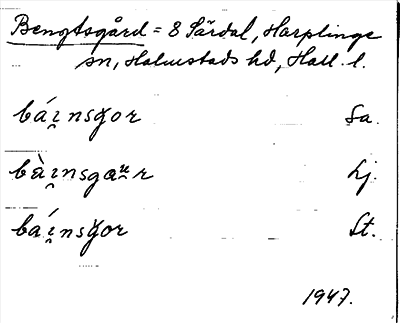 Bengtsgård = 8 Särdal, Harplinge
sn, Halmstads hd, Hall. l.
báı̯nsgor Sa.
bàı̯nsgau̯r Lj.
báı̯nsgor St.
1947.